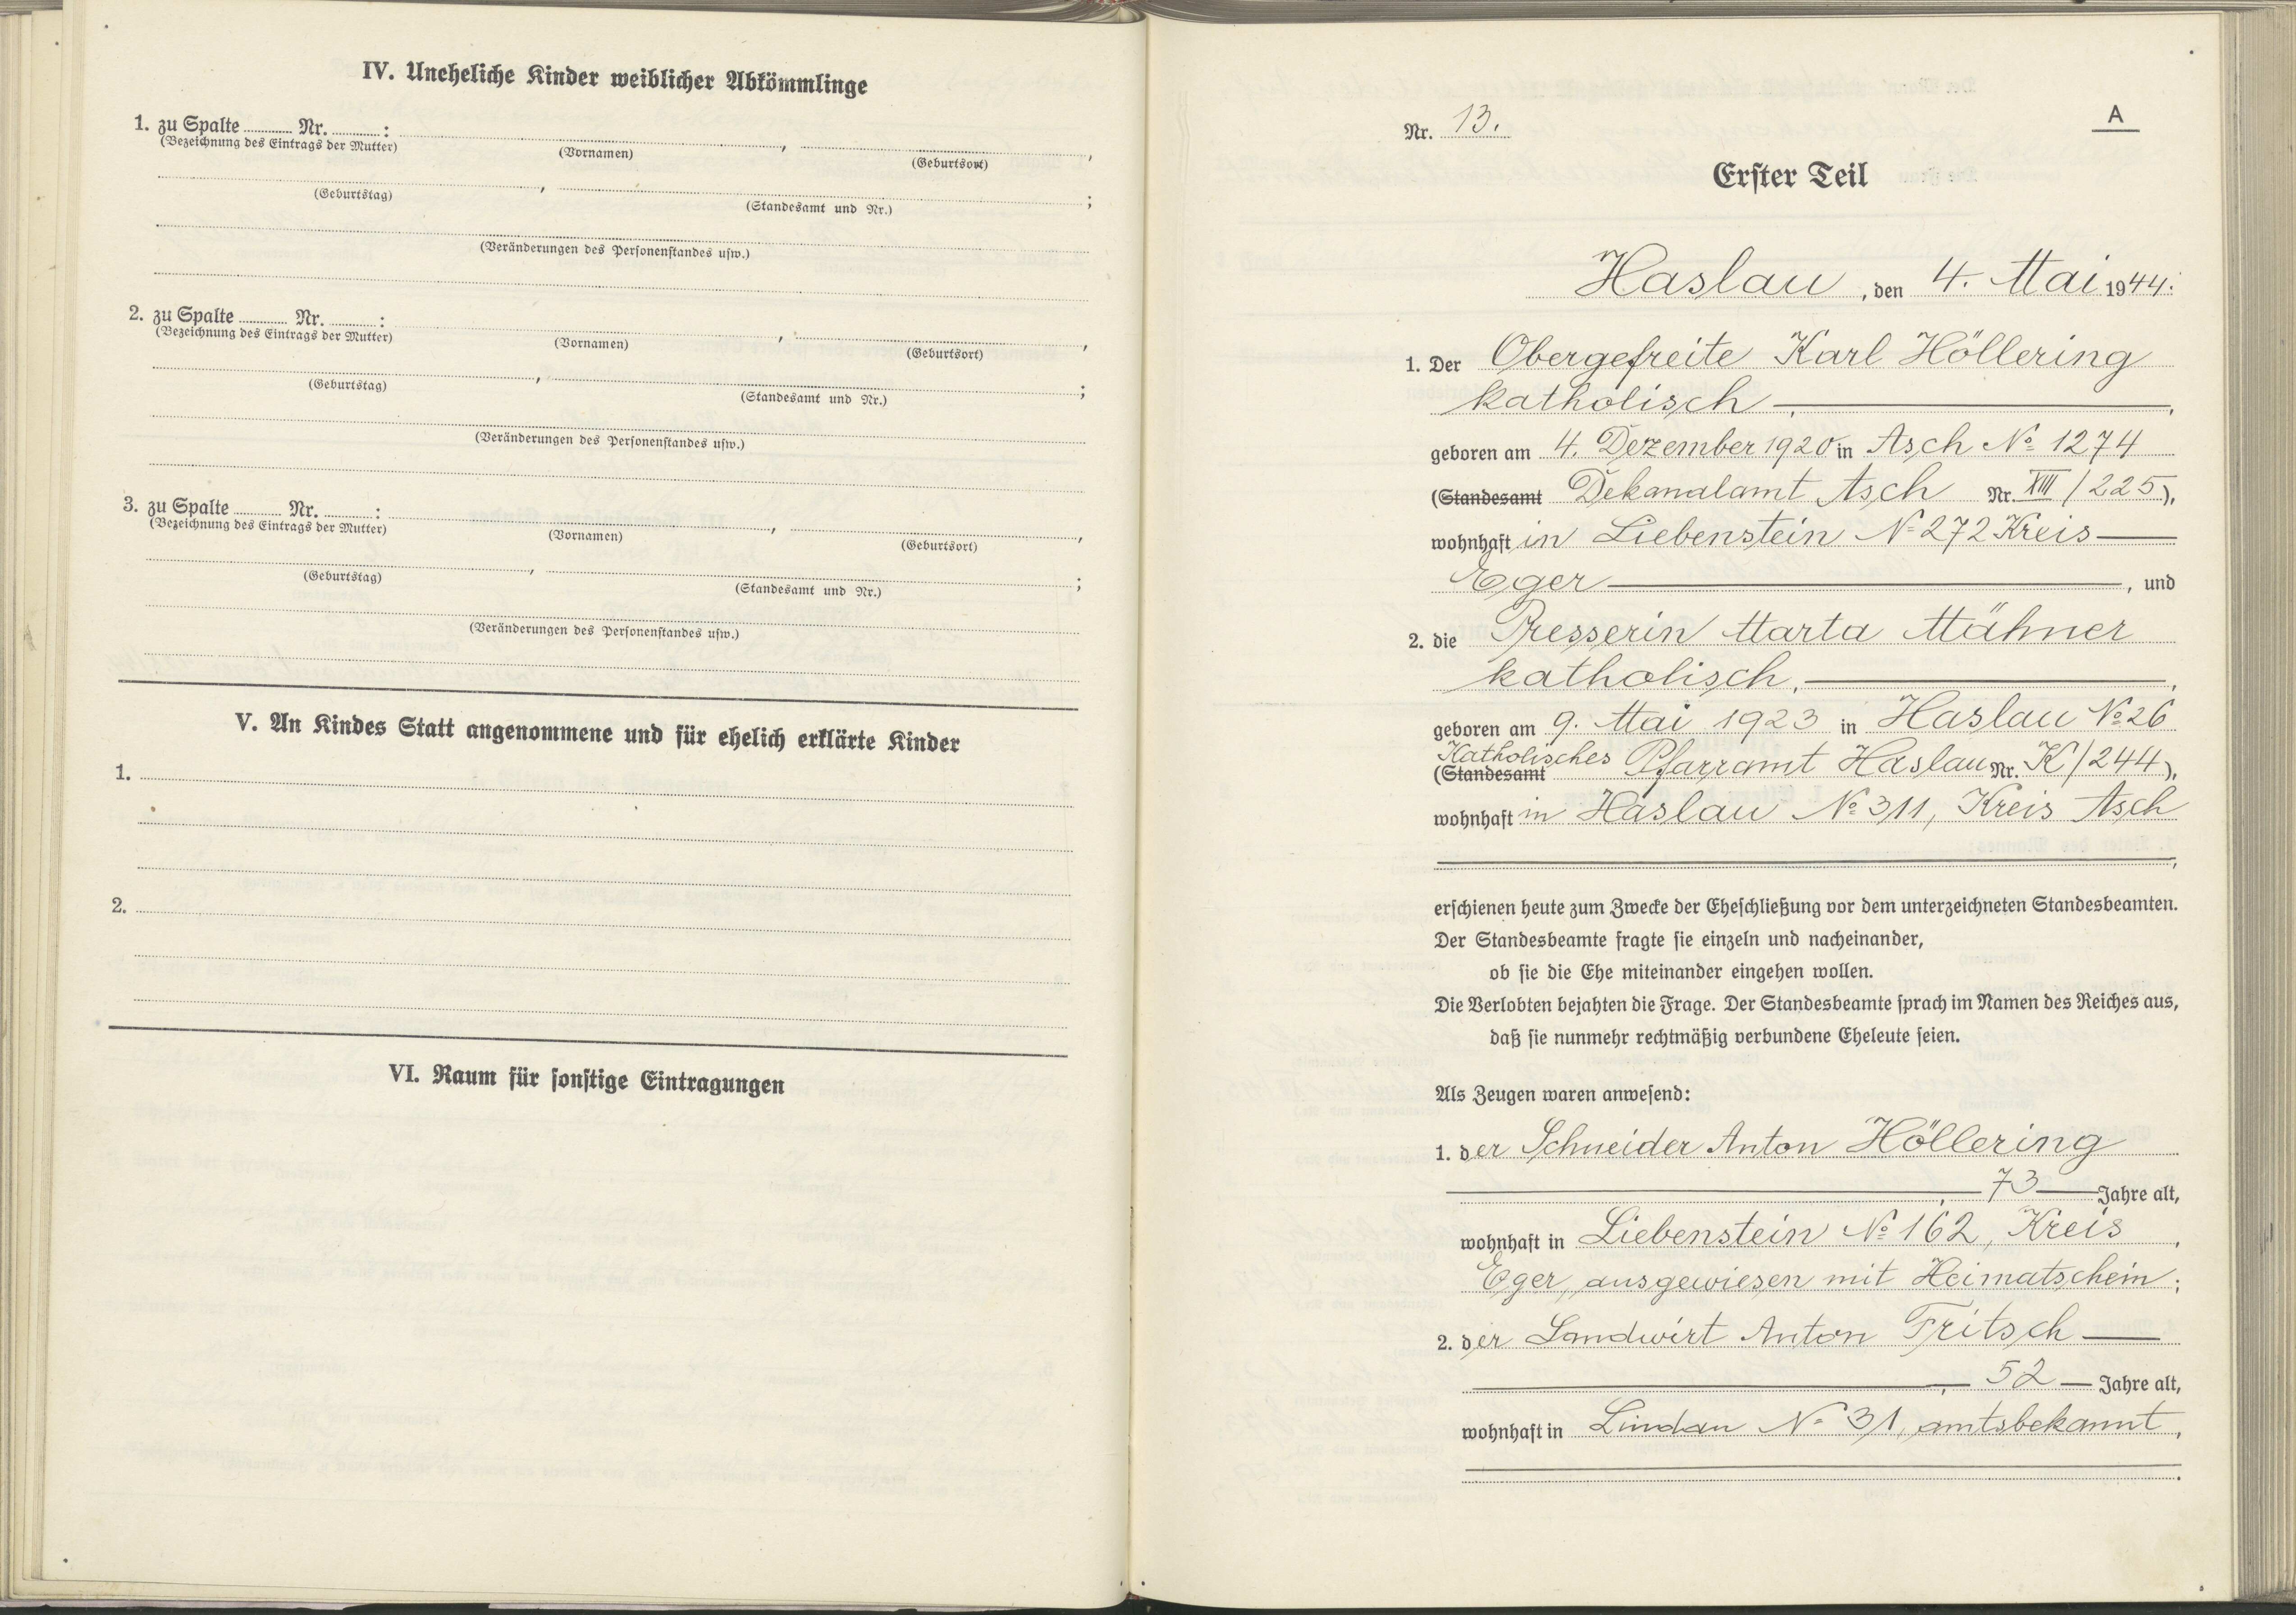 IV. Uneheliche Kinder weiblicher Abkömmlinge
1. zu Spalte ........ Nr. ........ :
(Bezeichnung des Eintrags der Mutter) (Vornamen) , (Geburtsort) ,
(Geburtstag) , (Standesamt und Nr.) ;
(Veränderungen des Personenstandes usw.)
2. zu Spalte ........ Nr. ........ :
(Bezeichnung des Eintrags der Mutter) (Vornamen) , (Geburtsort) ,
(Geburtstag) , (Standesamt und Nr.) ;
(Veränderungen des Personenstandes usw.)
3. zu Spalte ........ Nr. ........ :
(Bezeichnung des Eintrags der Mutter) (Vornamen) , (Geburtsort) ,
(Geburtstag) , (Standesamt und Nr.) ;
(Veränderungen des Personenstandes usw.)
V. An Kindes Statt angenommene und für ehelich erklärte Kinder
1.
2.
VI. Raum für sonstige Eintragungen
A
Nr. 13.
Erster Teil
Haslau, den 4. Mai 1944.
1. Der Obergefreite Karl Höllering
katholisch ,
geboren am 4. Dezember 1920 in Asch No 1274
(Standesamt Dekanalamt Asch Nr. XIII/225),
wohnhaft in Liebenstein No 272 Kreis
Eger , und
2. die Presserin Marta Mähner
katholisch,
geboren am 9. Mai 1923 in Haslau No 26
Katholisches
(Standesamt Pfarramt Haslau Nr. K/244),
wohnhaft in Haslau No 311, Kreis Asch
,
erschienen heute zum Zwecke der Eheschließung vor dem unterzeichneten Standesbeamten.
Der Standesbeamte fragte sie einzeln und nacheinander,
ob sie die Ehe miteinander eingehen wollen.
Die Verlobten bejahten die Frage. Der Standesbeamte sprach im Namen des Reiches aus,
daß sie nunmehr rechtmäßig verbundene Eheleute seien.
Als Zeugen waren anwesend:
1. der Schneider Anton Höllering
, 73 Jahre alt,
wohnhaft in Liebenstein No 162, Kreis ,
Eger, ausgewiesen mit Heimatschein;
2. der Landwirt Anton Fritsch
, 52 Jahre alt,
wohnhaft in Lindau No 31, amtsbekannt,
.